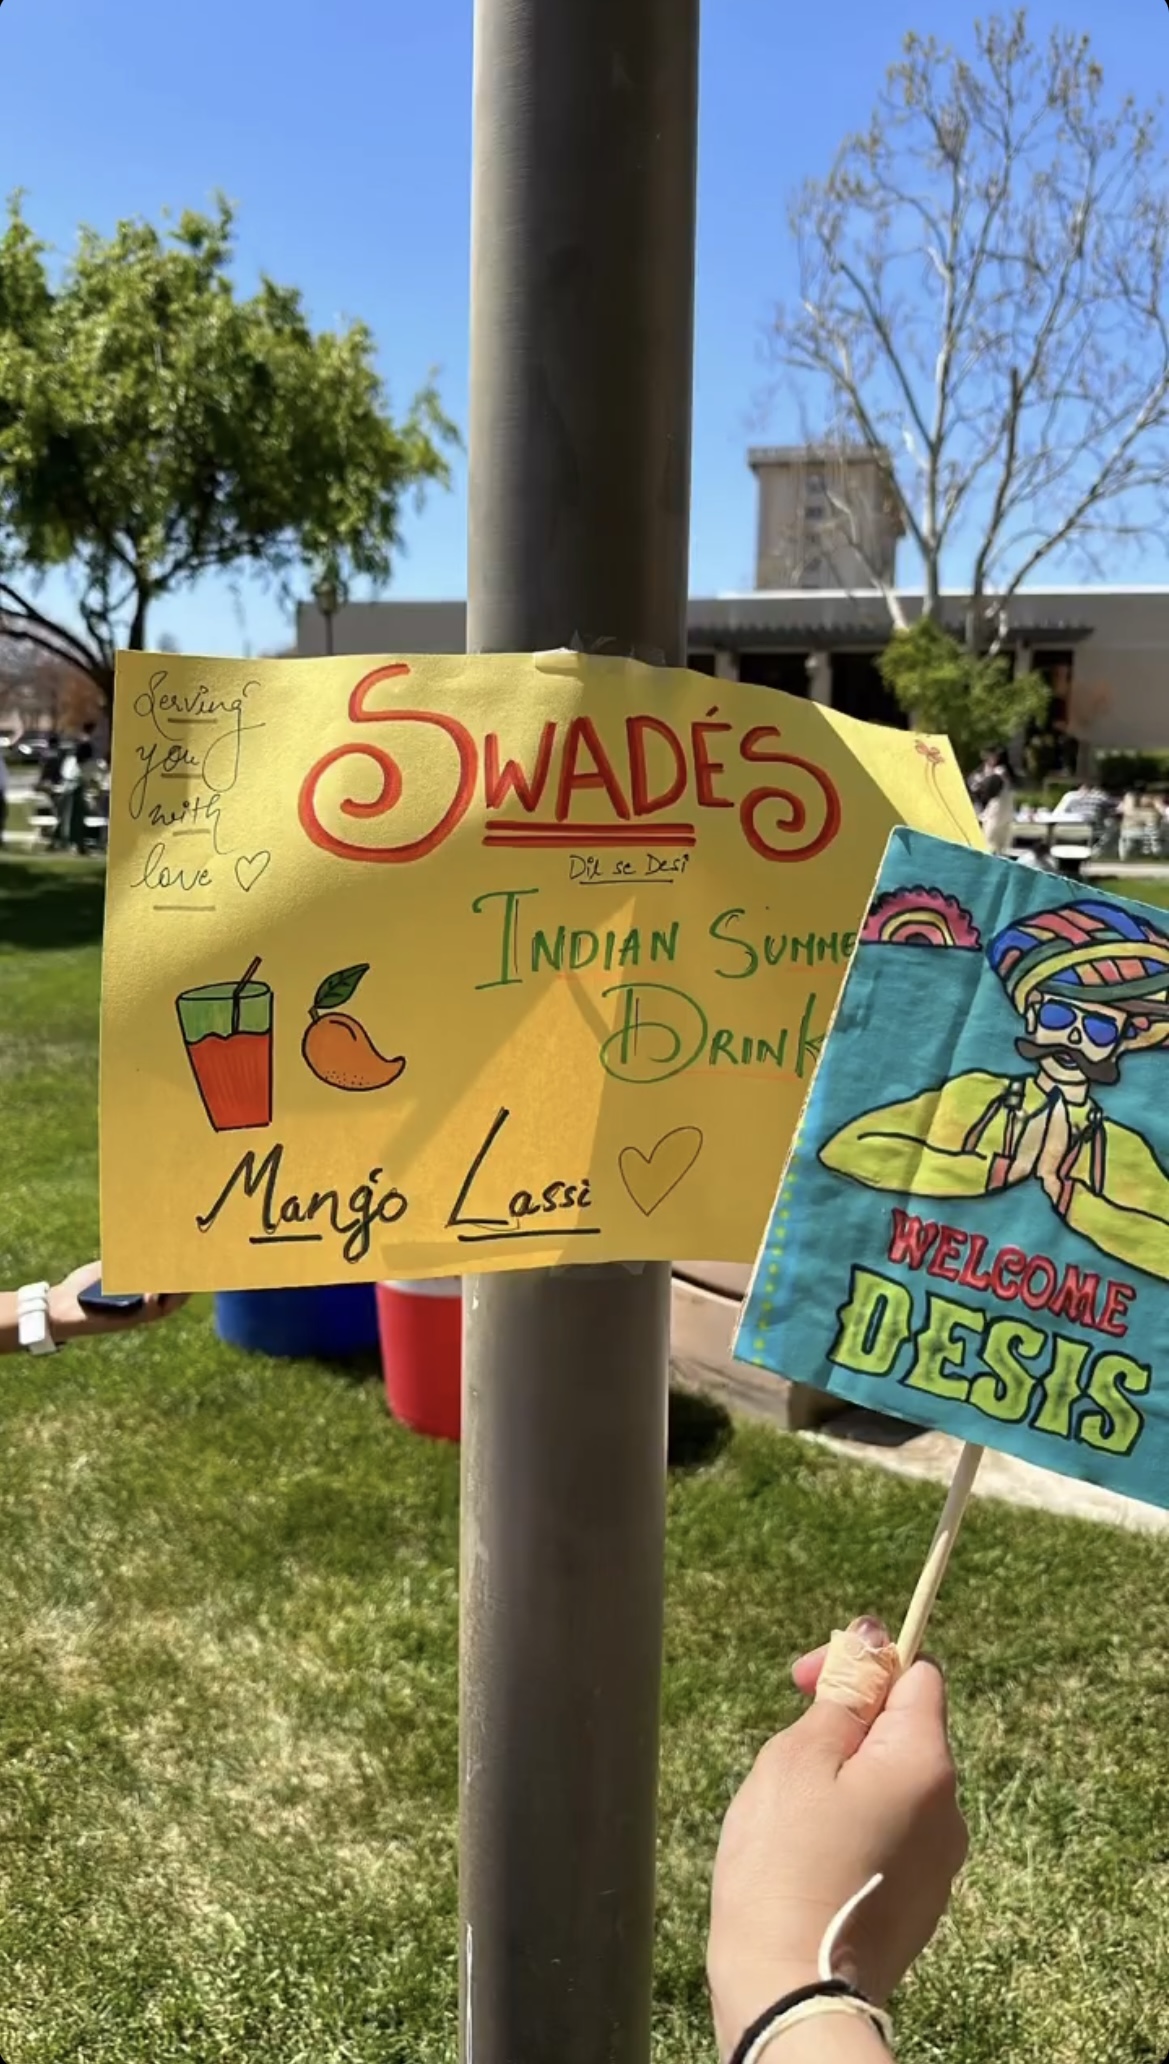 Serving
you
with
love
SWADÉS
Dil se Desi
INDIAN SUMME
DRINK
Mango Lassi
WELCOME
DESIS